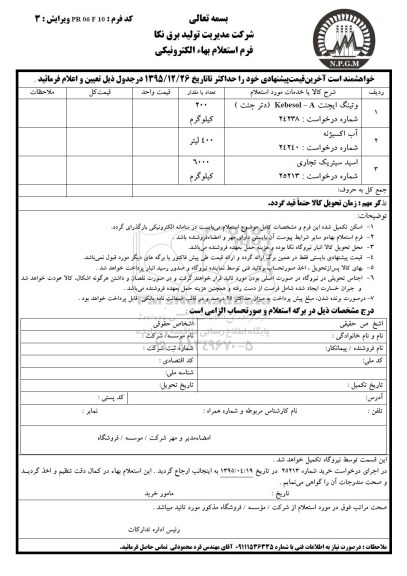 بسمه تعالی
کد فرم : PR 06 F 10 ویرایش : ۳
شرکت مدیریت تولید برق نکا
فرم استعلام بهاء الکترونیکی
N.P.G.M
خواهشمند است آخرین قیمت پیشنهادی خود را حداکثر تاتاریخ ۱۳۹۵/۱۲/۲۶ درجدول ذیل تعیین و اعلام فرمائید .
ردیف شرح کالا یا خدمات مورد استعلام تعداد یا مقدار قیمت واحد قیمت کل ملاحظات
۱ وتینگ ایجنت Kebesol – A (دتر جنت ) ۲۰۰
شماره درخواست : ۲۴۲۳۸ کیلوگرم
۲ آب اکسیژنه ۴۰۰ لیتر
شماره درخواست : ۲۴۲۴۰
۳ اسید سیتریک تجاری ۶۰۰۰
شماره درخواست : ۲۵۲۱۳ کیلوگرم
جمع کل به حروف:
تذکر مهم : زمان تحویل کالا حتماً قید گردد.
توضیحات:
۱- اسکن تکمیل شده این فرم و مشخصات کامل موضوع استعلام می‌بایست در سامانه الکترونیکی بارگذرای گردد.
۲- فرم استعلام بهاءو سایر شرایط پیوست آن بایستی دارای مهر و امضاءفروشنده باشد .
۳- محل تحویل کالا انبار نیروگاه نکا بوده و هزینه حمل بعهده فروشنده می‌باشد .
۴- قیمت پیشنهادی بایستی فقط در همین برگه ارائه گردد و ارائه قیمت طی پیش فاکتور یا برگه های دیگر مورد قبول نمی‌باشد.
۵- بهای کالا پس‌ازتحویل ، اخذ صورتحساب‌وتائید فنی توسط نماینده نیروگاه و صدور رسید انبار پرداخت خواهد شد .
۶- اجناس تحویلی در نیروگاه در صورت اصلی بودن مورد تائید قرار خواهند گرفت و در صورت نقصان و داشتن هرگونه اشکال، کالا عودت خواهد شد
و جبران خسارات ایجاد شده شامل فرصت از دست رفته و همچنین هزینه حمل بعهده فروشنده می‌باشد .
۷- درصورت برنده شدن، مبلغ پیش پرداخت به میزان حداکثر ۲۵ درصد و در قالب ضمانت نامه بانکی، قابل پرداخت خواهد بود .
درج مشخصات ذیل در برگه استعلام و صورتحساب الزامی است :
اشخاص حقیقی اشخاص حقوقی
نام و نام خانوادگی : نام موسسه/ شرکت :
نام فروشنده / پیمانکار: شماره ثبت شرکت :
کد ملی: کد اقتصادی :
شناسه ملی:
تاریخ تکمیل : تاریخ تحویل:
آدرس: کد پستی :
تلفن : نام کارشناس مربوطه و شماره همراه : نمابر :
امضاءمدیر و مهر شرکت / موسسه / فروشگاه
این قسمت توسط نیروگاه تکمیل خواهد شد .
در اجرای درخواست خرید شماره ۲۵۲۱۳ در تاریخ ۱۳۹۵/۰۴/۱۹ به اینجانب ارجاع گردید . این استعلام بهاء در کمال دقت تنظیم و اخذ گردیده
و صحت مندرجات آن را گواهی می‌نمایم .
تاریخ : مامور خرید
صحت مراتب فوق در مورد استعلام از شرکت / مؤسسه / فروشگاه مذکور مورد تائید میباشد .
رئیس اداره تدارکات
ملاحظات : درصورت نیاز به اطلاعات فنی با شماره ۰۹۱۱۱۵۳۶۳۳۵ آقای مهندس فره محمودلی تماس حاصل فرمائید.